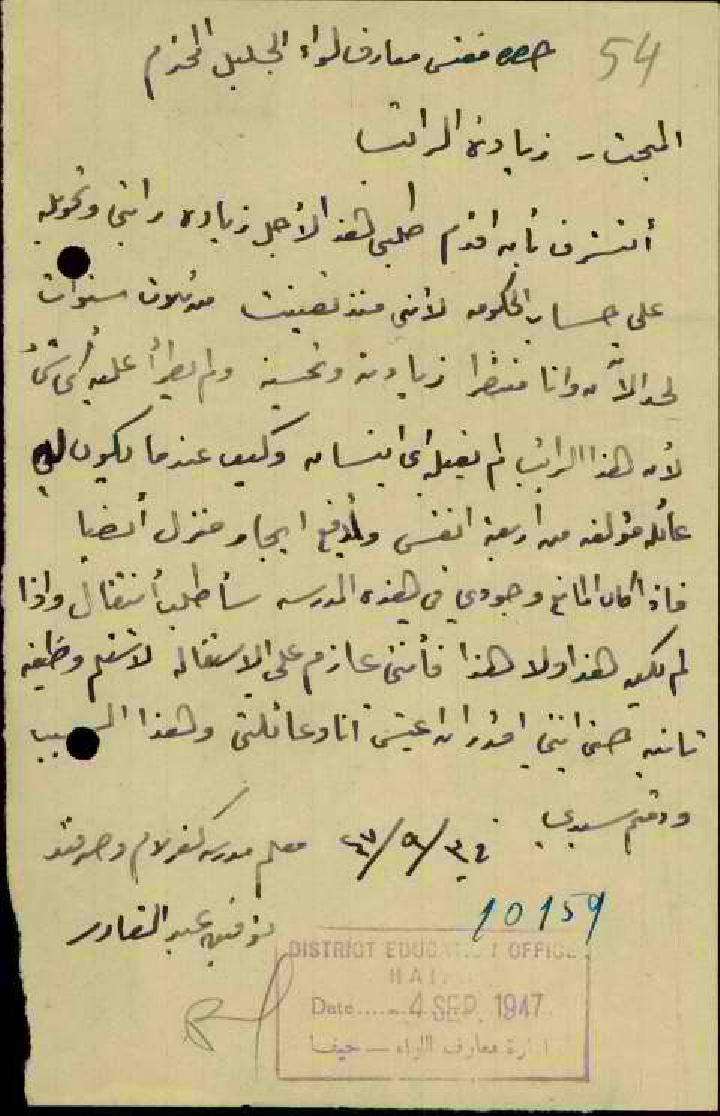 54
حضرة مفتش معارف لواء الجليل المحترم
المبحث - زيادة الراتب
أتشرف بأن اقدم طلبي هذا لأجل زيادة راتبي وتحويله
على حساب الحكومه لأنني منذ تعينت من ثلاث سنوات
لحد الآن وانا منتظرا زيادة وتحسين ولم يطرأ عليه أي شيء
لأن هذا الراتب لم يقبله اي انسان وكيف عندما يكون لي
عائله مؤلفه من أربعة انفس وأدفع ايجار منزل أيضا
فاذا كان المانع وجودي في هذه المدرسه سأطلب أنتقال واذا
لم يكن هذا ولا هذا فأنني عازم على الاستقاله لاستلم وظيفه
ثانيه حتى انني اقدر ان اعيش انا وعائلتي ولهذا السبب
ودمتم سيدي
معلم مدرسة كفرلام وصرفند
توفيق عبد القادر
10159
DISTRICT EDUCATION OFFICE
HAI
Date 4 SEP. 1947
ادارة معارف اللواء - حيفا